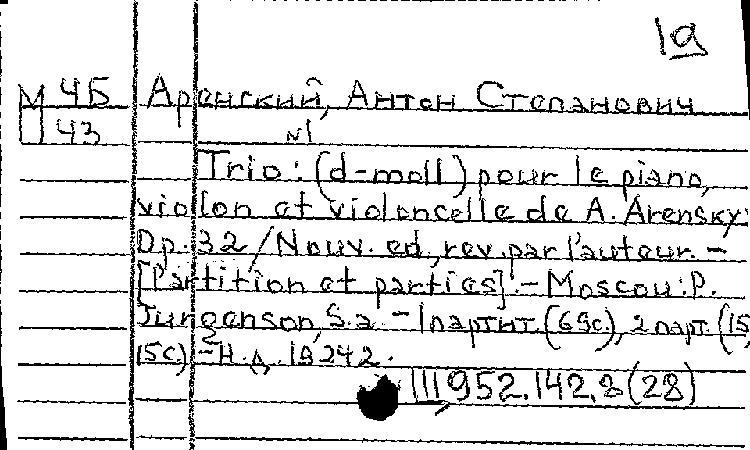 19
М 4Б Аренский, Антон Степанович
Ц 43 №1
Trio: (d-moll) pour le piano,
violon et violoncelle de A. Arensky.
Op. 32 / Nouv. ed, rev. par l'auteur. –
[Partition et parties]. – Moscou: P.
Jurgenson, S.a. – 1 партит. (69с.), 2 парт. (15,
15с.) – Н.д. 19242.
III, 952.142.8 (28)